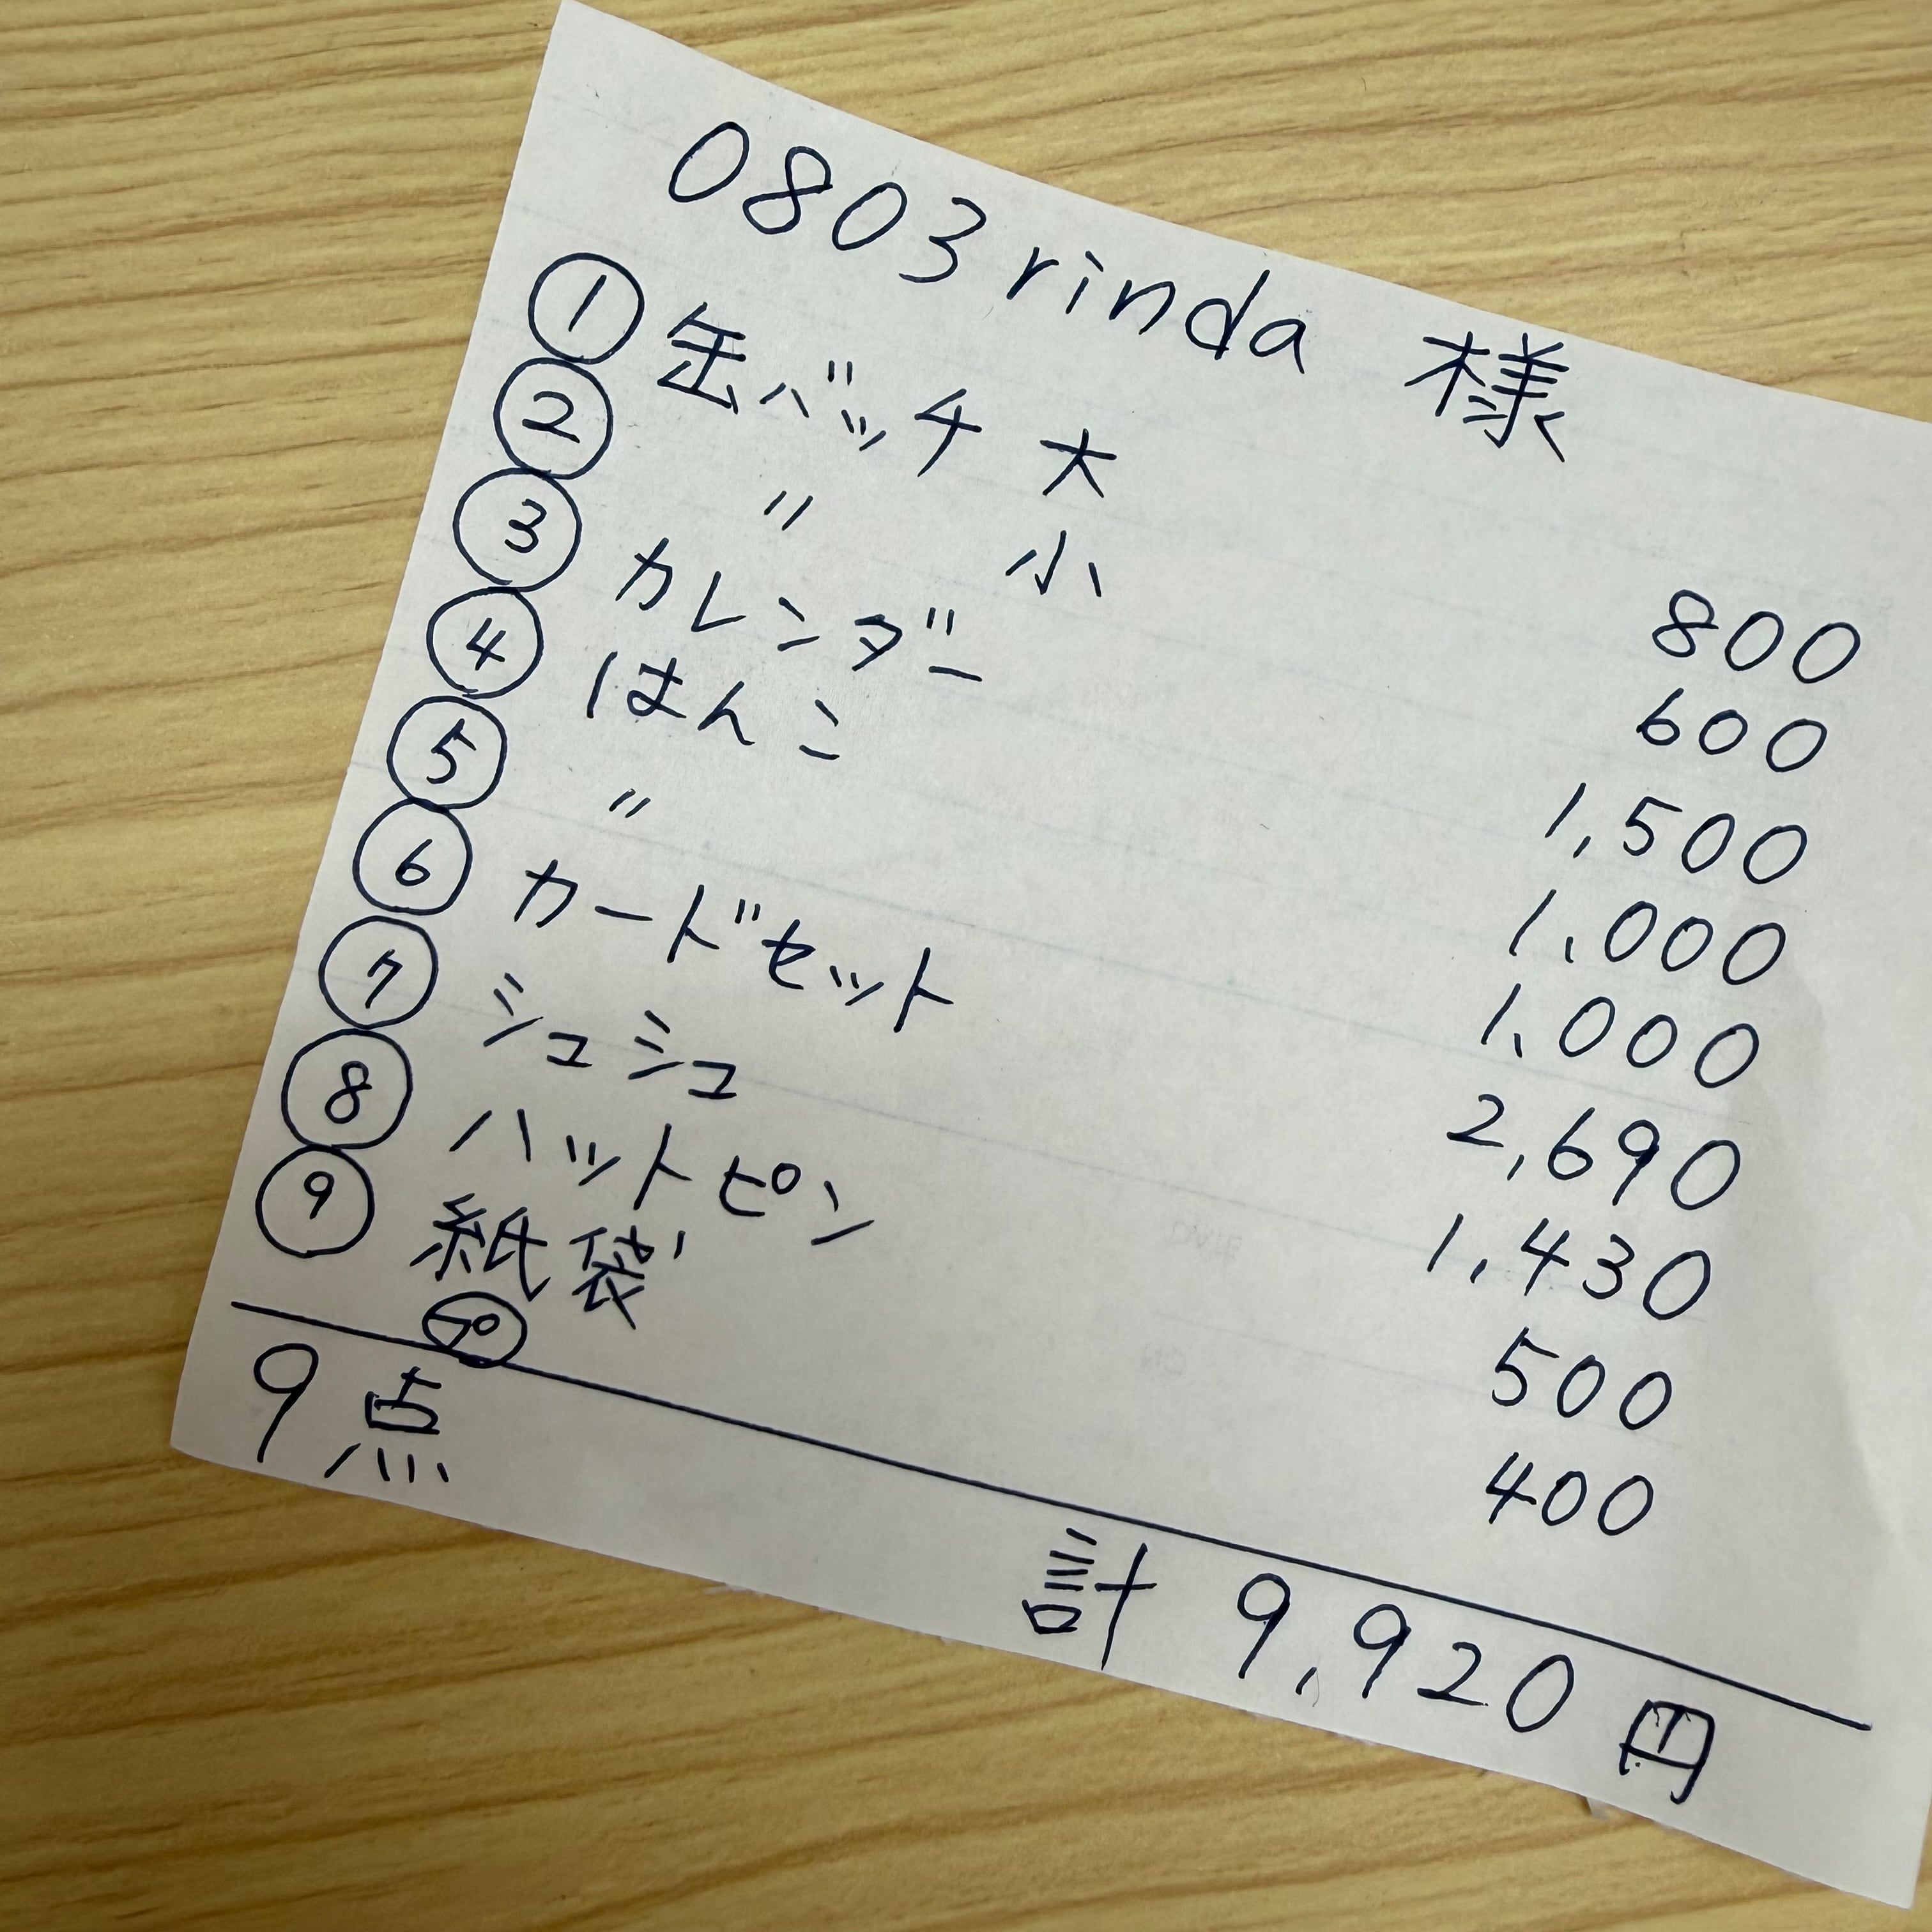 0803rinda 様
① 缶バッチ 大 800
② 〃 小 600
③ カレンダー 1,500
④ はんこ 1,000
⑤ 〃 1,000
⑥ カードセット 2,690
⑦ シュシュ 1,430
⑧ ハットピン 500
⑨ 紙袋 400
9点
計 9,920円